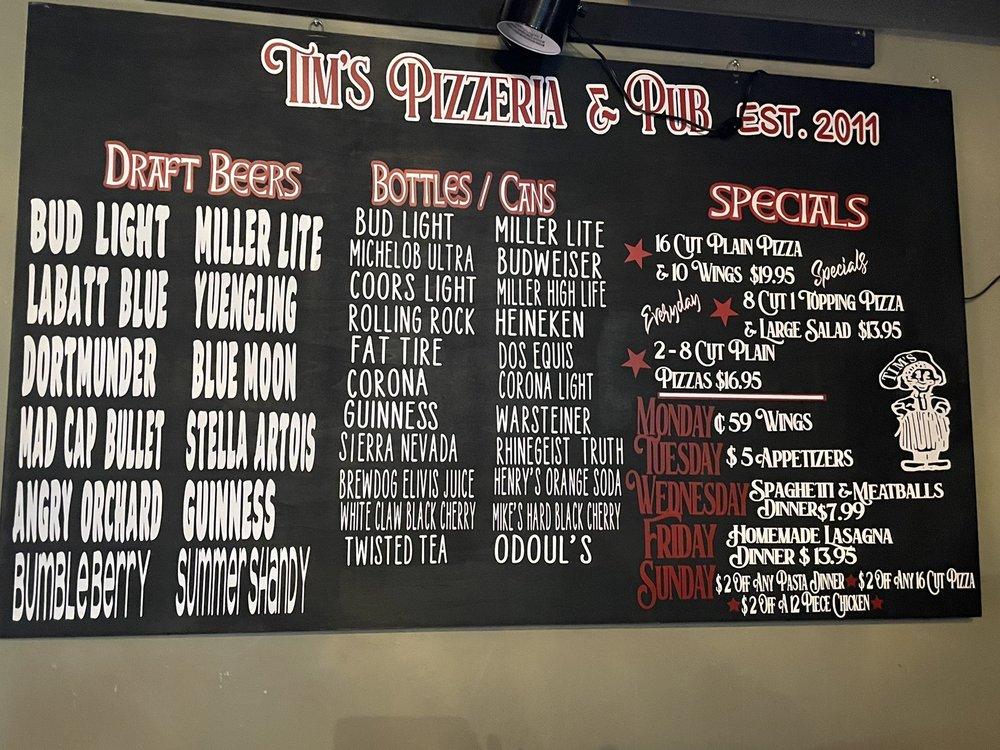 Tim's Pizzeria & Pub EST. 2011
Draft Beers
BUD LIGHT MILLER LITE
LABATT BLUE YUENGLING
DORTMUNDER BLUE MOON
MAD CAP BULLET STELLA ARTOIS
ANGRY ORCHARD GUINNESS
BUMBLEBERRY SUMMER SHANDY
Bottles / Cans
BUD LIGHT MILLER LITE
MICHELOB ULTRA BUDWEISER
COORS LIGHT MILLER HIGH LIFE
ROLLING ROCK HEINEKEN
FAT TIRE DOS EQUIS
CORONA CORONA LIGHT
GUINNESS WARSTEINER
SIERRA NEVADA RHINEGEIST TRUTH
BREWDOG ELIVIS JUICE HENRY'S ORANGE SODA
WHITE CLAW BLACK CHERRY MIKE'S HARD BLACK CHERRY
TWISTED TEA ODOUL'S
SPECIALS
16 Cut Plain Pizza
& 10 Wings $19.95 Specials
Everyday 8 Cut 1 Topping Pizza
& Large Salad $13.95
2 - 8 Cut Plain
Pizzas $16.95
TIM'S
Monday ¢ 59 Wings
Tuesday $ 5 Appetizers
Wednesday Spaghetti & Meatballs
Dinner $7.99
Friday Homemade Lasagna
Dinner $ 13.95
Sunday $ 2 Off Any Pasta Dinner $ 2 Off Any 16 Cut Pizza
$ 2 Off A 12 Piece Chicken